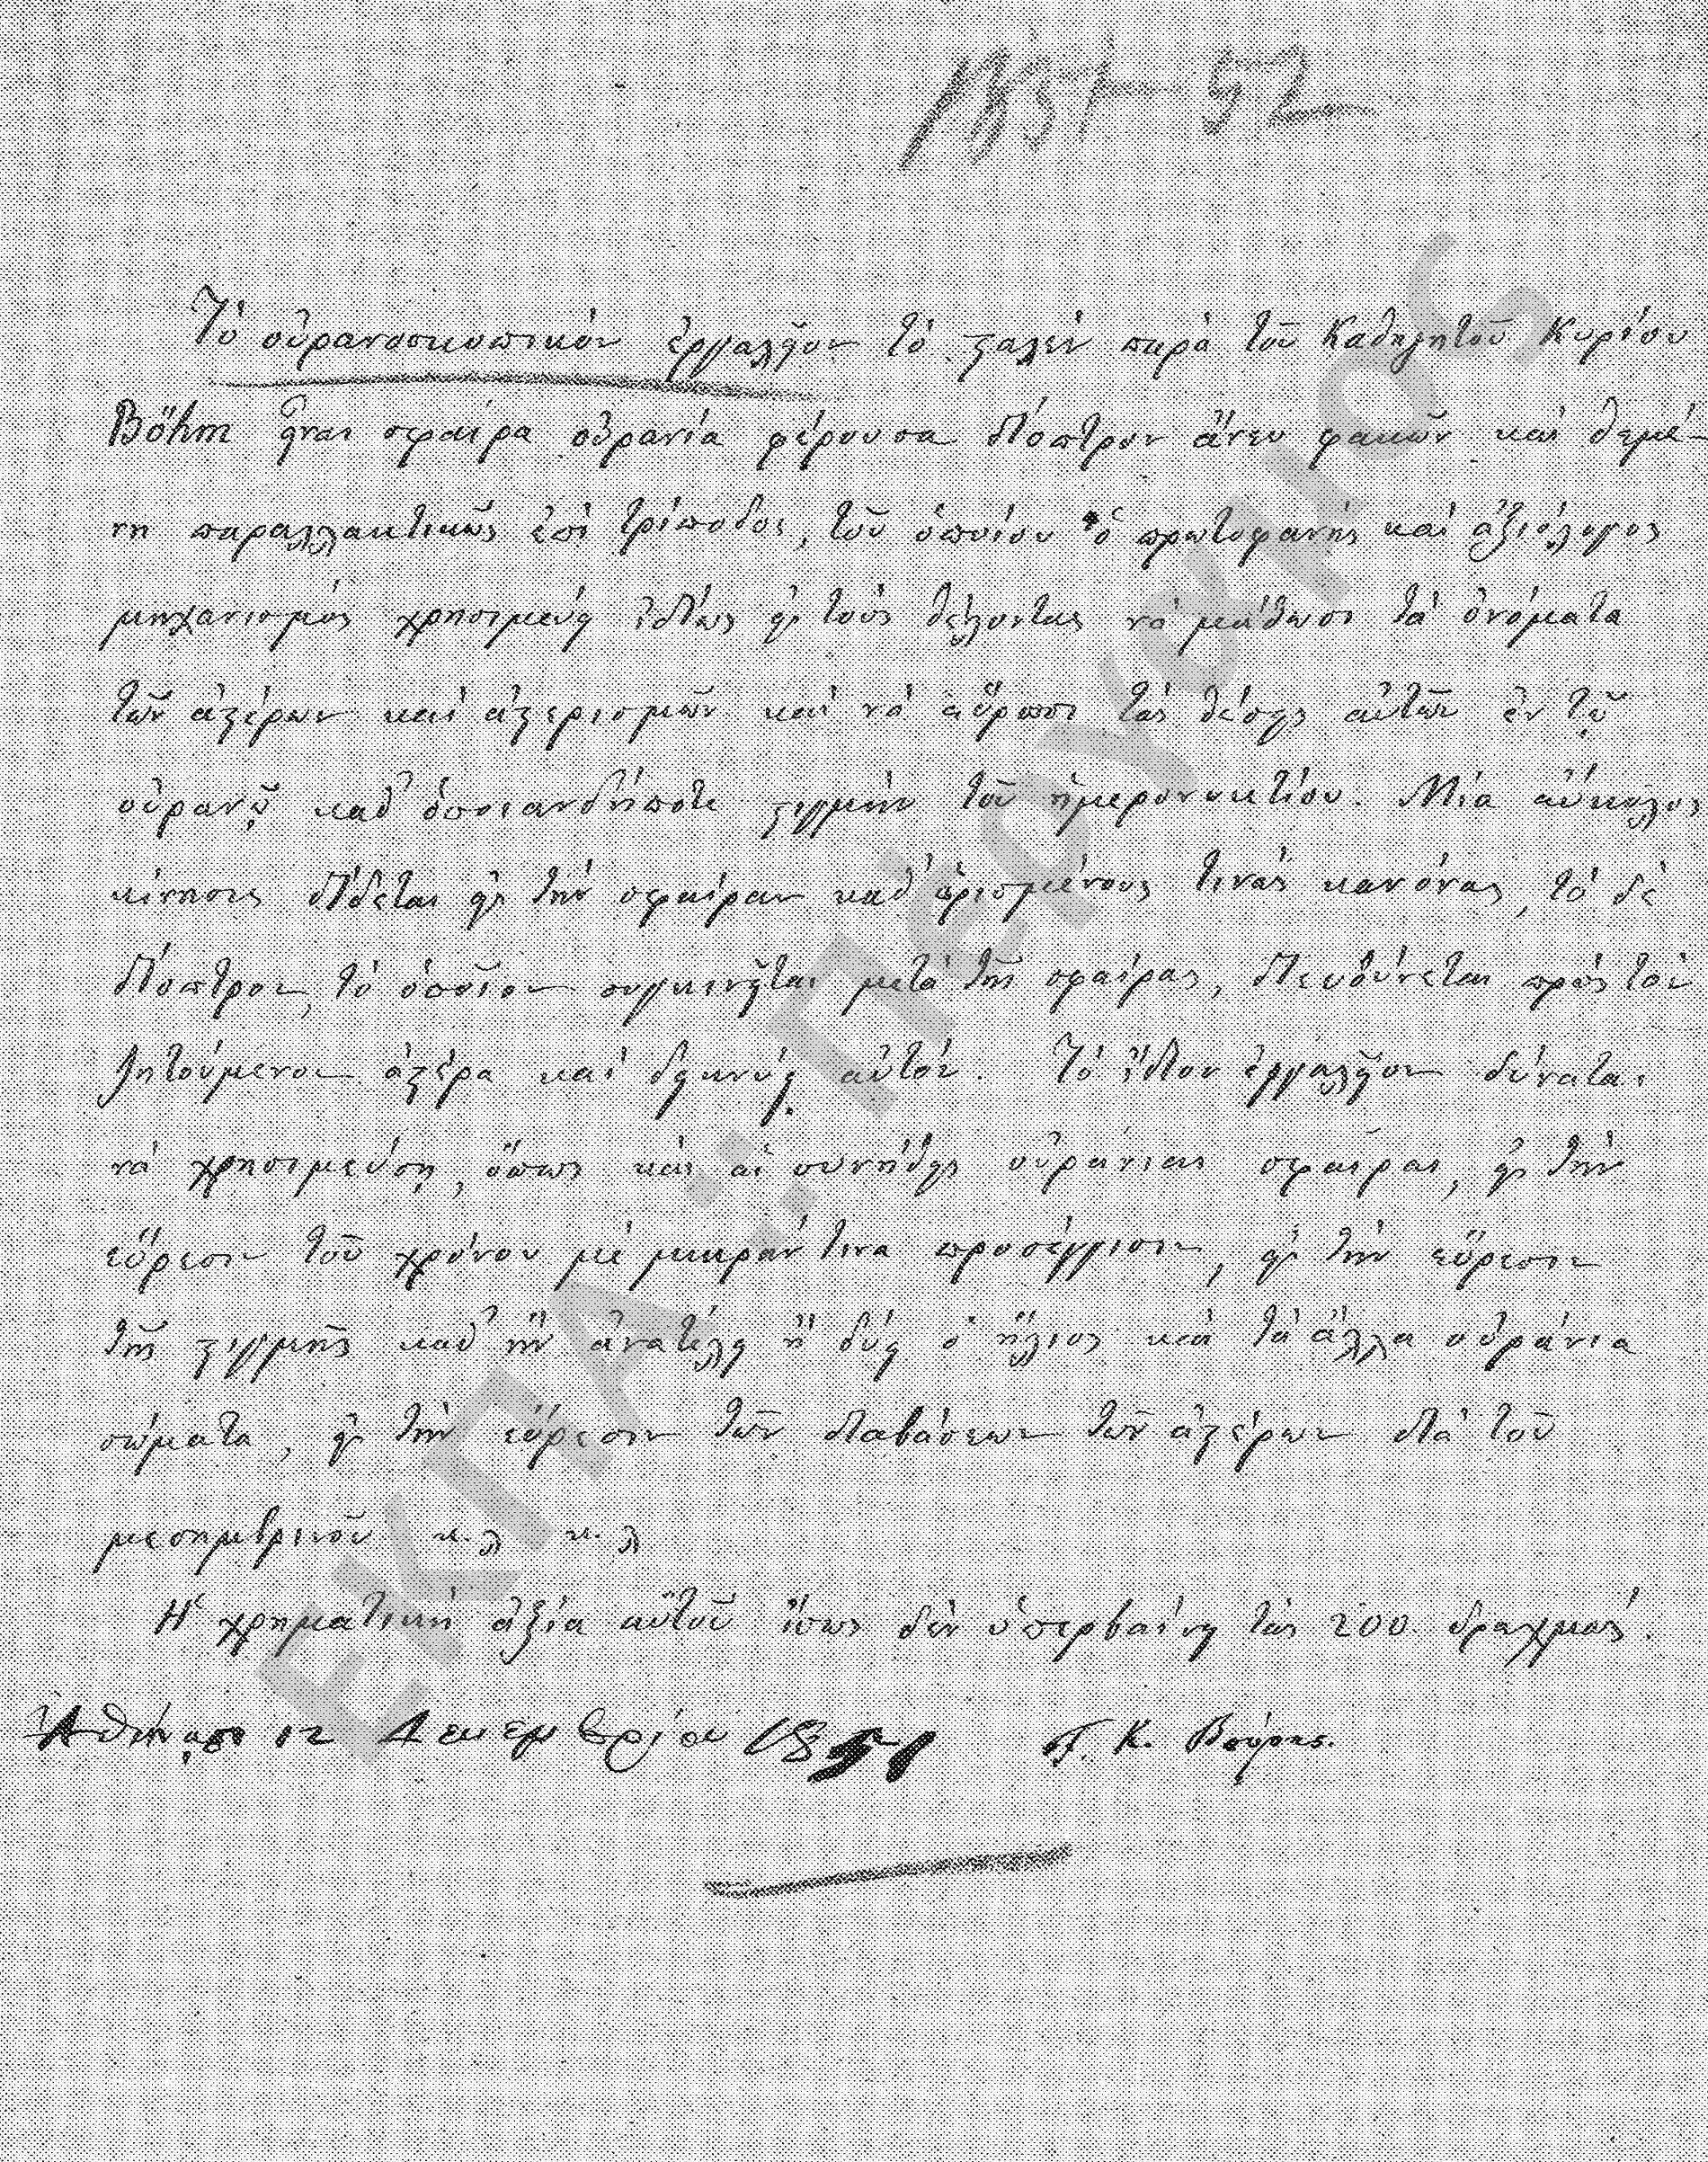 1851-52
Τὸ οὐρανοσκοπικὸν ἐργαλεῖον τὸ σταλὲν παρὰ τοῦ Καθηγητοῦ Κυρίου
Böhm εἶναι σφαῖρα οὐρανία φέρουσα δίοπτρον ἄνευ φακῶν καὶ θεμέ-
νη παραλλακτικῶς ἐπὶ τρίποδος, τοῦ ὁποίου ὁ πρωτοφανὴς καὶ ἀξιόλογος
μηχανισμὸς χρησιμεύει ἰδίως εἰς τοὺς θέλοντας νὰ μάθωσι τὰ ὀνόματα
τῶν ἀστέρων καὶ ἀστερισμῶν καὶ νὰ εὕρωσι τὰς θέσεις αὐτῶν ἐν τῷ
οὐρανῷ καθ' ὁποιανδήποτε στιγμὴν τοῦ ἡμερονυκτίου. Μία εὔκολος
κίνησις δίδεται εἰς τὴν σφαῖραν καθ' ὡρισμένους τινὰς κανόνας, τὸ δὲ
δίοπτρον, τὸ ὁποῖον συγκινεῖται μετὰ τῆς σφαίρας, διευθύνεται πρὸς τὸν
ζητούμενον ἀστέρα καὶ δεικνύει αὐτόν. Τὸ ἴδιον ἐργαλεῖον δύναται
νὰ χρησιμεύσῃ, ὅπως καὶ αἱ συνήθεις οὐράνιαι σφαῖραι, εἰς τὴν
εὕρεσιν τοῦ χρόνου μὲ μικράν τινα προσέγγισιν, εἰς τὴν εὕρεσιν
τῆς στιγμῆς καθ' ἣν ἀνατέλλει ἢ δύει ὁ ἥλιος καὶ τὰ ἄλλα οὐράνια
σώματα, εἰς τὴν εὕρεσιν τῶν διαβάσεων τῶν ἀστέρων διὰ τοῦ
μεσημβρινοῦ κ.λ κ.λ
Ἡ χρηματικὴ ἀξία αὐτοῦ ἴσως δὲν ὑπερβαίνει τὰς 200 δραχμάς.
Ἀθήνησι 12 Δεκεμβρίου 1851 Γ. Κ. Βούρης.
ΕΚΠΑ.: Πέργαμος